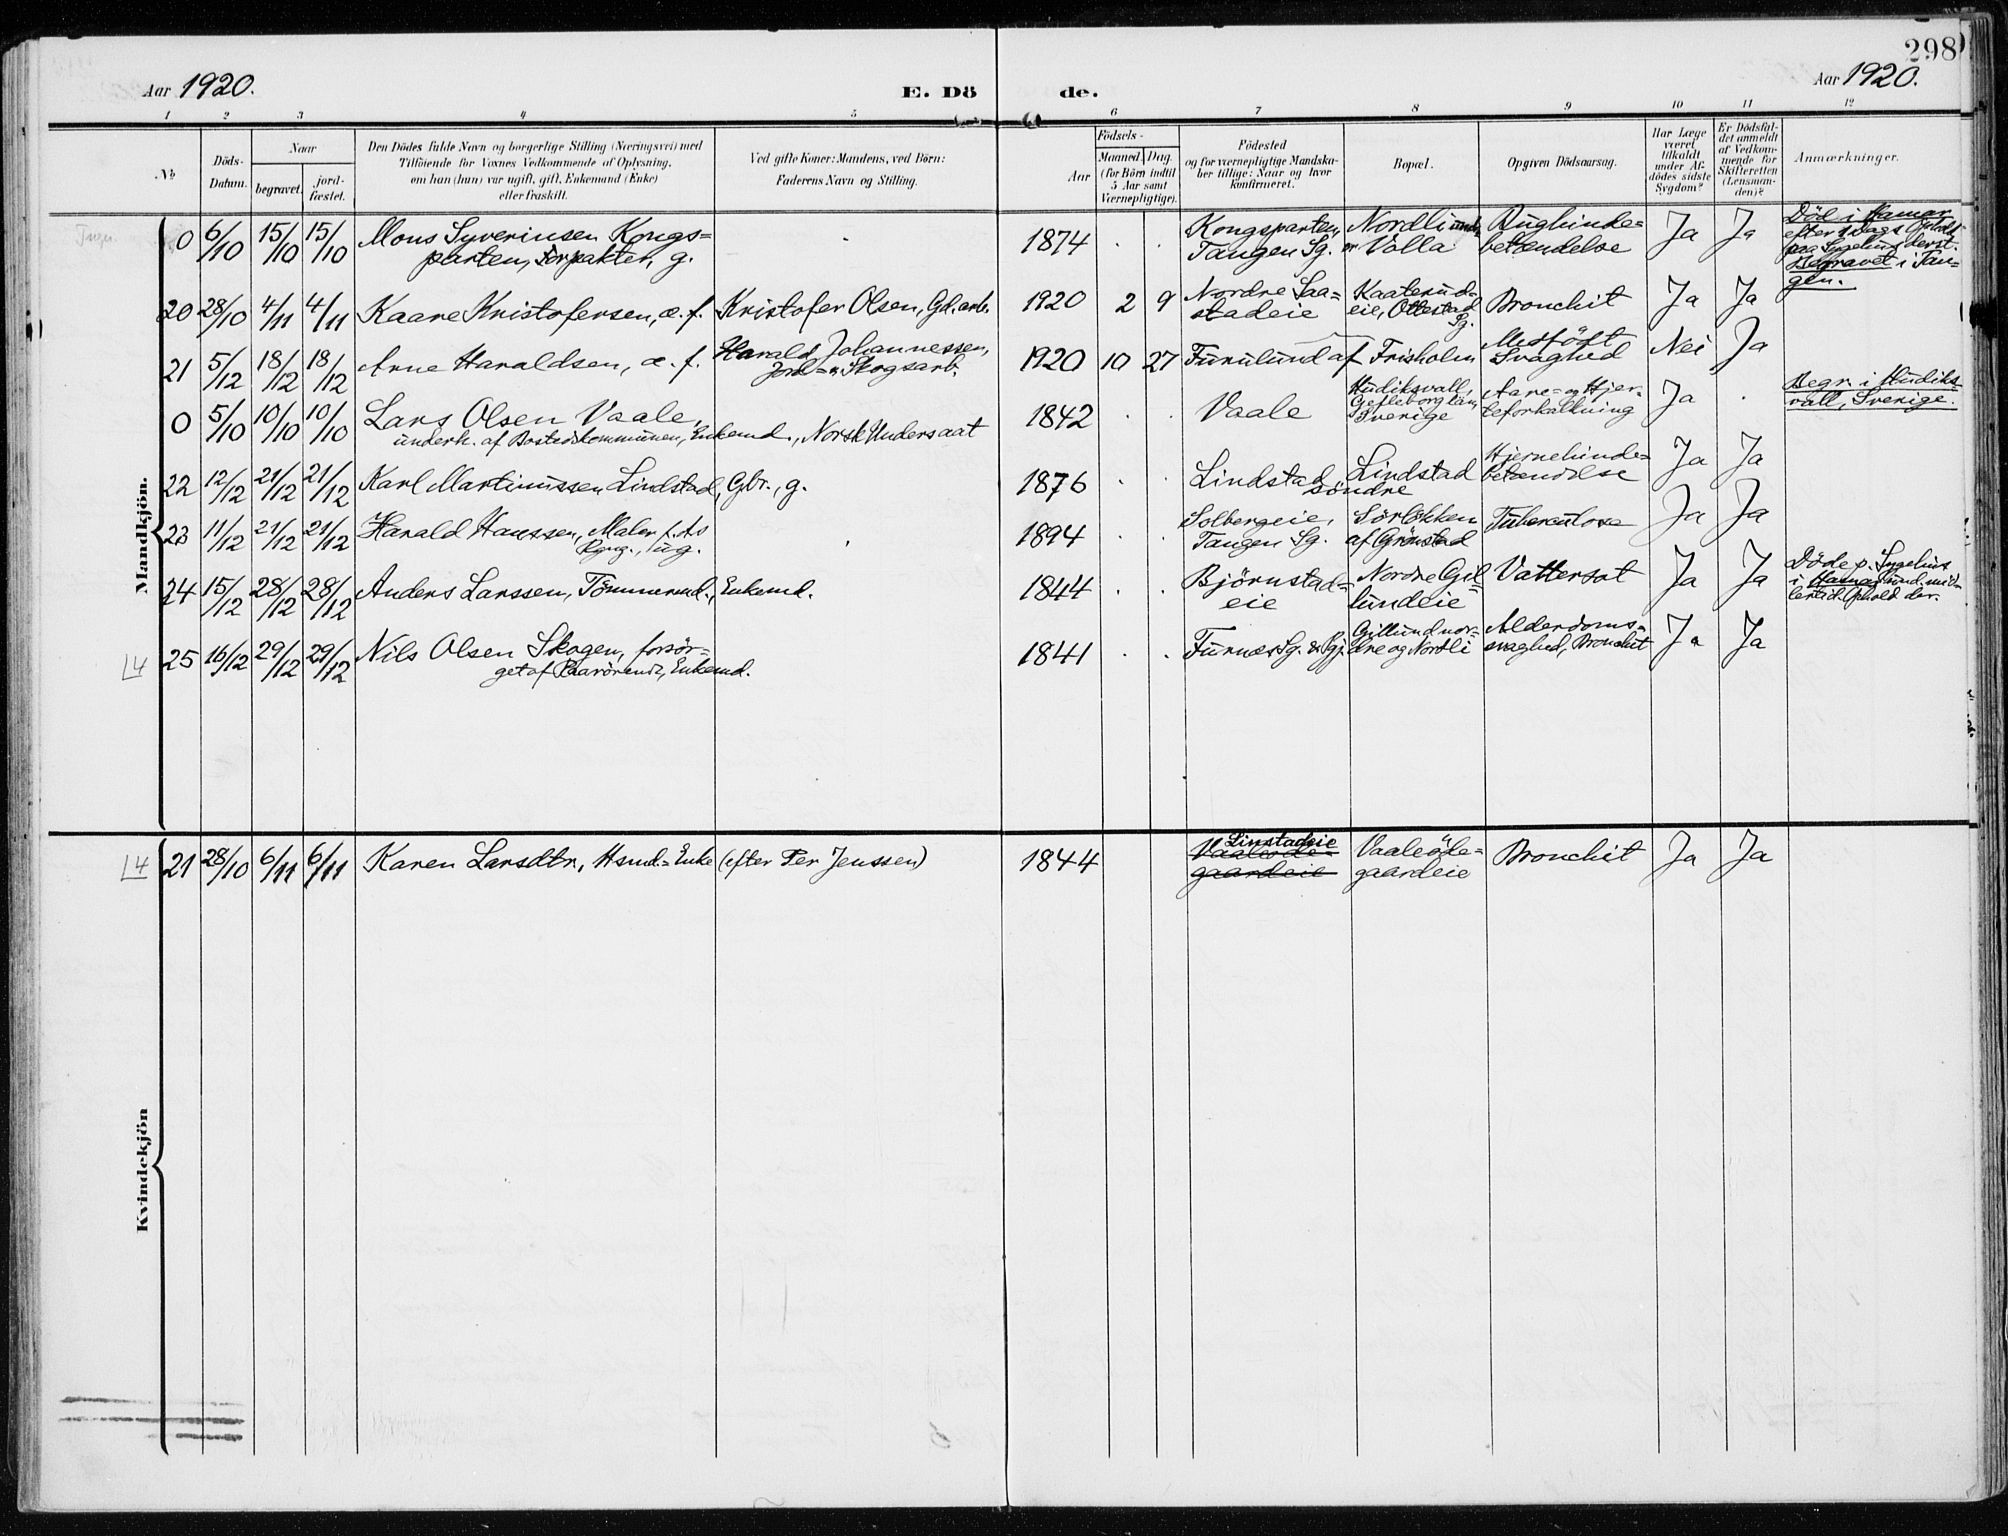 298
Aar 1920.
E. Dö de.
Aar 1920.
1 2 3 4 5 6 7 8 9 10 11 12
No
Döds-
Datum.
Naar
begravet.
jord-
fæstet.
Den Dödes fulde Navn og borgerlige Stilling (Næringsvei) med
Tilföiende for Voxnes Vedkommende af Oplysning,
om han (hun) var ugift, gift, Enkemand (Enke)
eller fraskilt.
Ved gifte Koner: Mandens, ved Börn:
Faderens Navn og Stilling.
Födsels-
Aar
Maaned. Dag.
(for Börn indtil
5 Aar samt
Værnepligtige).
Födested
og for værnepligtige Mandska-
ber tillige: Naar og hvor
konfirmeret.
Bopæl.
Opgiven Dödsaarsag.
Har Læge
været
tilkaldt
under Af-
dödes sidste
Sygdom?
Er Dödsfal-
det anmeldt
af Vedkom-
mende for
Skifteretten
(Lensman-
den)?
Anmærkninger.
Mandkjön.
0 6/10 15/10 15/10 Mons Syverinsen Kongs=
parten, Forpakter, g.
1874 Kongsparten,
Tangen Sg.
Nordli
Volla
Bughinde=
betændelse
Ja Ja
Död i Hamar
efter Dags Ophold
paa Sygehus derst.
Begravet i Tan=
gen.
20 28/10 4/11 4/11 Kaare Kristofersen, æ. f. Kristofer Olsen, Gd.arb.
1920 2 9 Nordre Saa=
stadeie
Kaaterud=
eie, Ottestad
Sg.
Bronchit Ja Ja
21 5/12 18/12 18/12 Arne Haraldsen, æ. f. Harald Johannessen,
Jord= & Skogsarb.
1920 10 27 Furulund af Frisholm
Medfödt
Svaghed
Nei Ja
0 5/10 10/10 10/10 Lars Olsen Vaale,
underh. af Bostedskommunen, Enkemd., Norsk Undersaat
1842 Vaale
Hudiksvall,
Gefleborg län,
Sverige
Aare= og Hjer=
teforkalkning
Ja
Begr. i Hudiks=
vall, Sverige.
22 12/12 21/12 21/12 Karl Martinussen Lindstad, Gbr., g.
1876 Lindstad Lindstad
söndre
Hjernehinde=
betændelse
Ja Ja
23 11/12 21/12 21/12 Harald Hanssen, Maler
ug.
1894 Solbergeie,
Tangen Sg.
Sörlökken
af Grönstad
Tuberculose Ja Ja
24 15/12 28/12 28/12 Anders Larssen, Tömmermd., Enkemd.
1844 Björnstad=
eie
Nordre Gil=
lundeie
Vattersot Ja Ja
Döde p. Sygehus
i Hamar mid=
lertid. Ophold der.
14 25 16/12 29/12 29/12 Nils Olsen Skogen, forsör=
get af Paarörende, Enkemd.
1841 Furnes Sg. & Pgj.
Gillund nor=
dre og Nordli
Alderdoms=
svaghed, Bronchit
Ja Ja
Kvindekjön
14 21 28/10 6/11 6/11 Karen Larsdtr., Hsmd.=Enke (efter Per Jenssen)
1844 Linstadeie
Vaaleöde=
gaardeie
Vaaleöde=
gaardeie
Bronchit Ja Ja